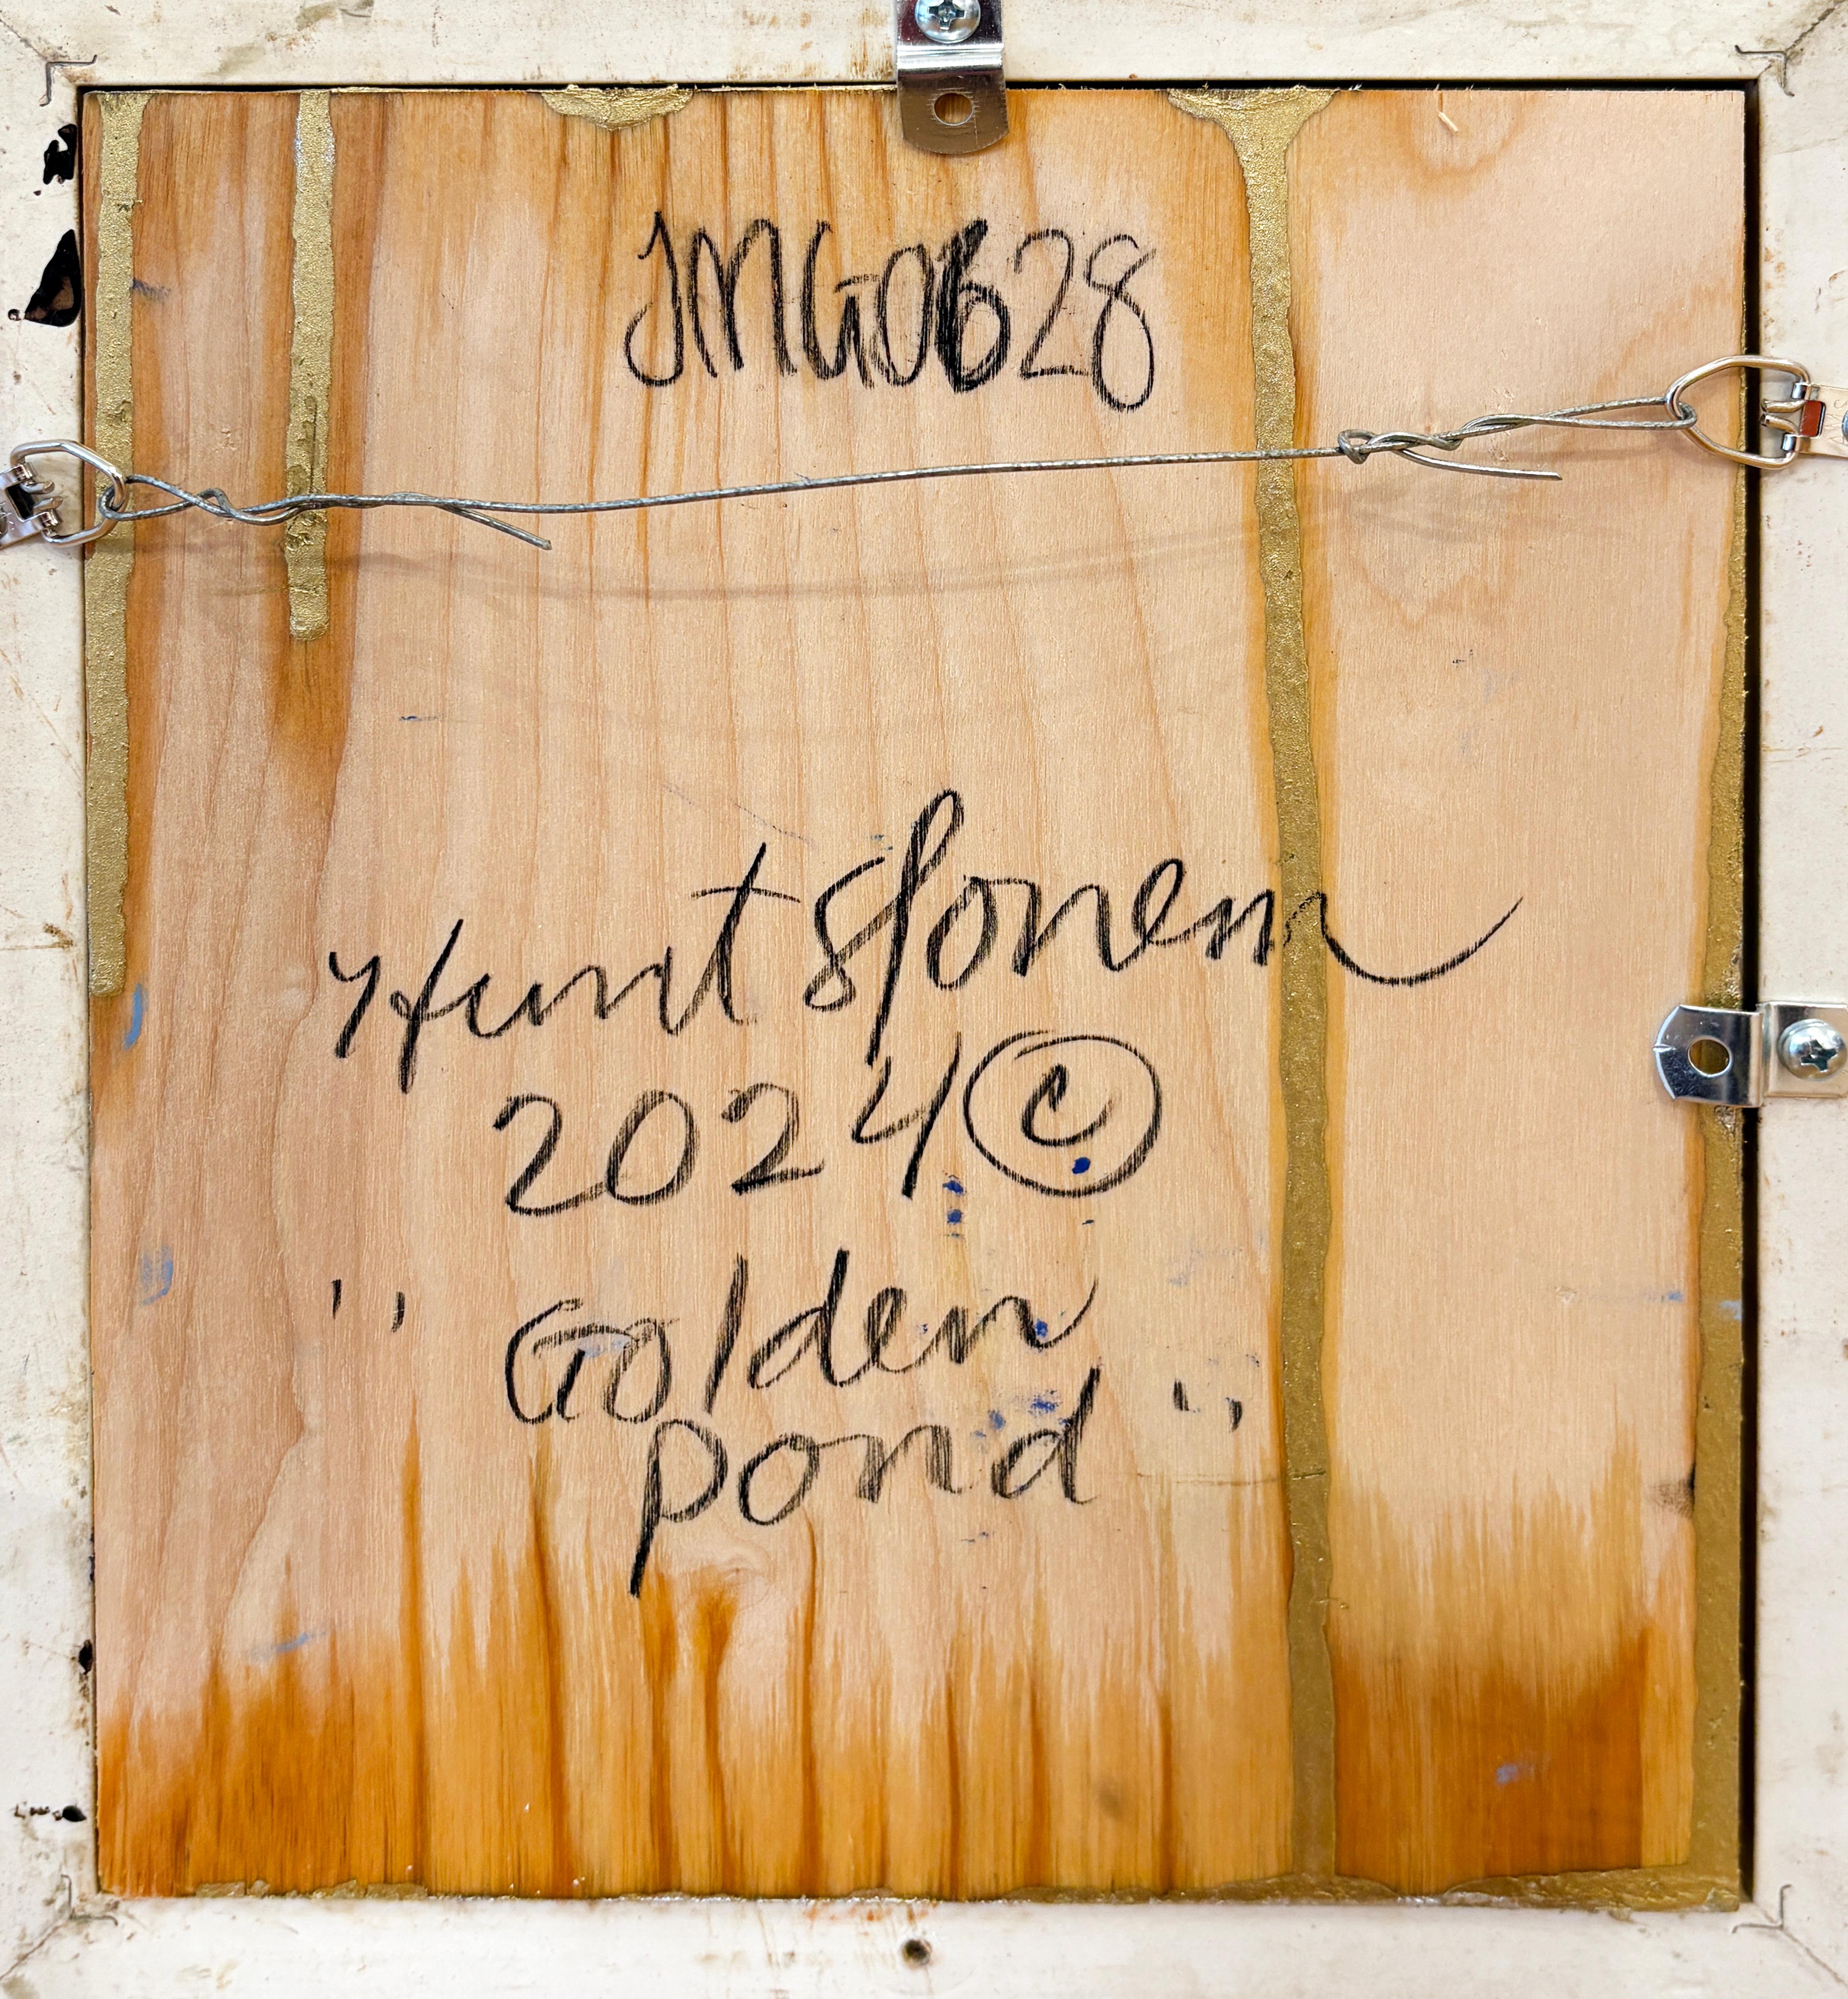 JMG0628
Hunt Slonem
2024 ©
"Golden
Pond"